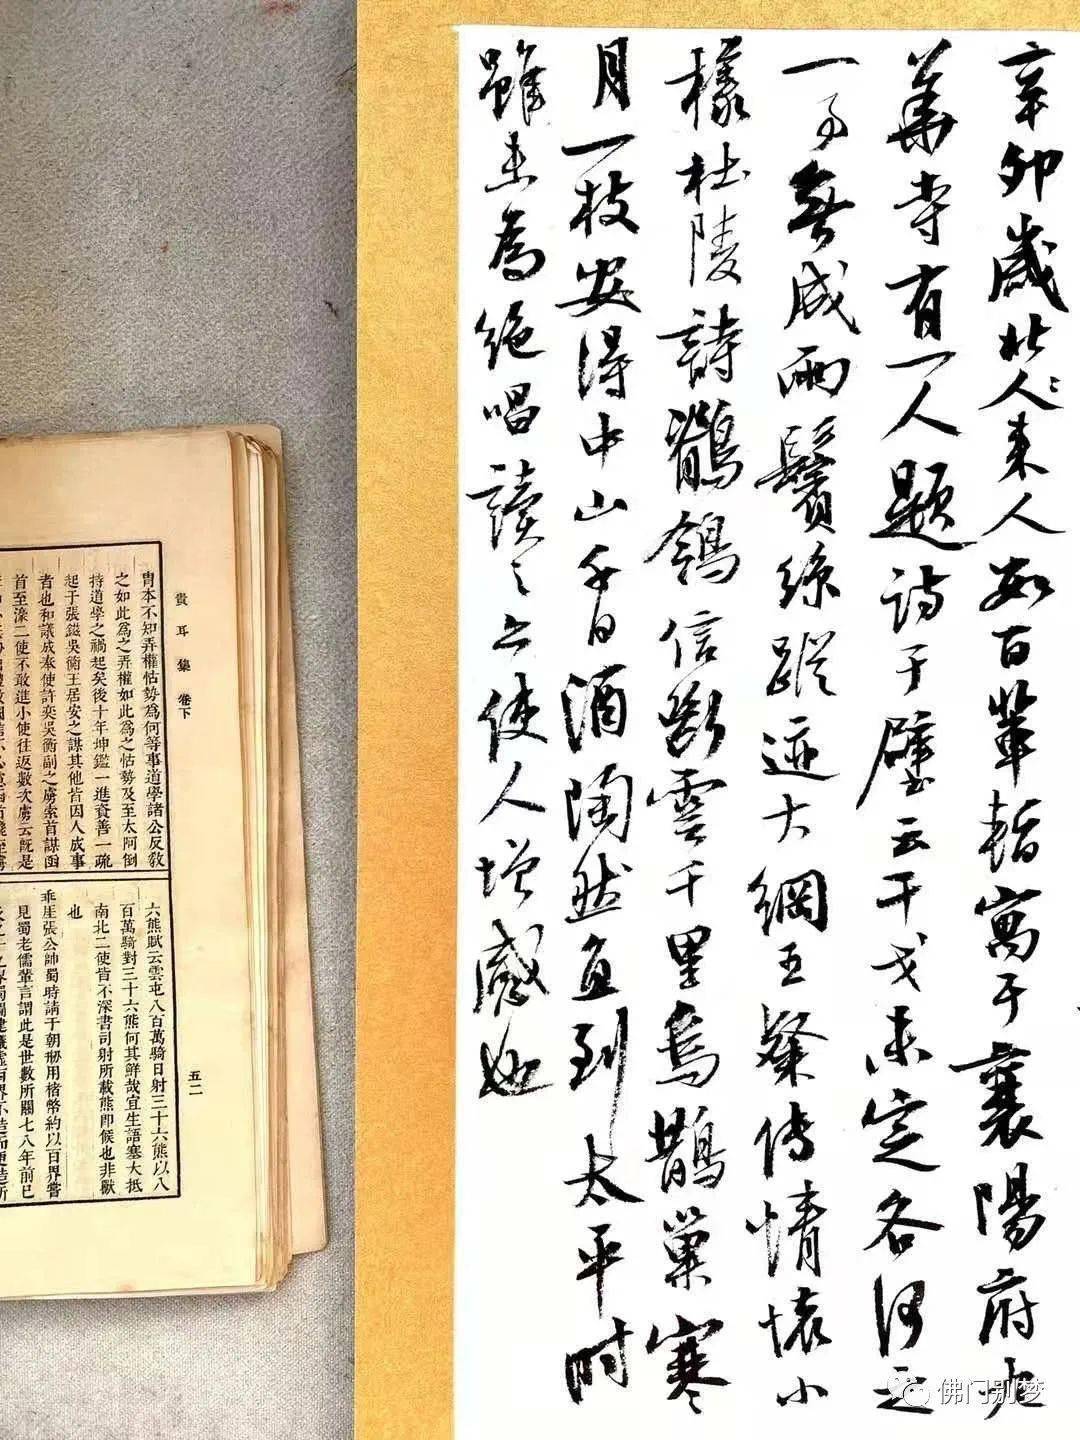 辛卯歲北人來人數百輩暫寓于襄陽府光
華寺有一人題詩于壁云干戈未定各何之
一事無成兩鬢絲蹤迹大綱王粲傳情懷小
樣杜陵詩鶺鴒信斷雲千里烏鵲巢寒
月一枝安得中山千日酒陶然直到太平時
雖未為絕唱讀之亦使人增感也
貴耳集 卷下
五二
冑本不知弄權怙勢為何等事道學諸公反敎
之如此為之弄權如此為之怙勢及至太阿倒
持道學之禍起矣後十年坤鑑一進資善一疏
起于張鎡吳衡王居安之謀其他皆因人成事
者也和議成奉使許奕吳衡副之虜索首謀函
首至濠二使不敢進小使往返數次虜云旣是
六熊賦云雲屯八百萬騎日射三十六熊以八
百萬騎對三十六熊何其鮮哉宜生語塞大抵
南北二使皆不深書司射所載熊卽候也非獸
也
乖崖張公帥蜀時請于朝刱用楮幣約以百界嘗
見蜀老儒輩言謂此是世數所關七八年前已
佛门别梦